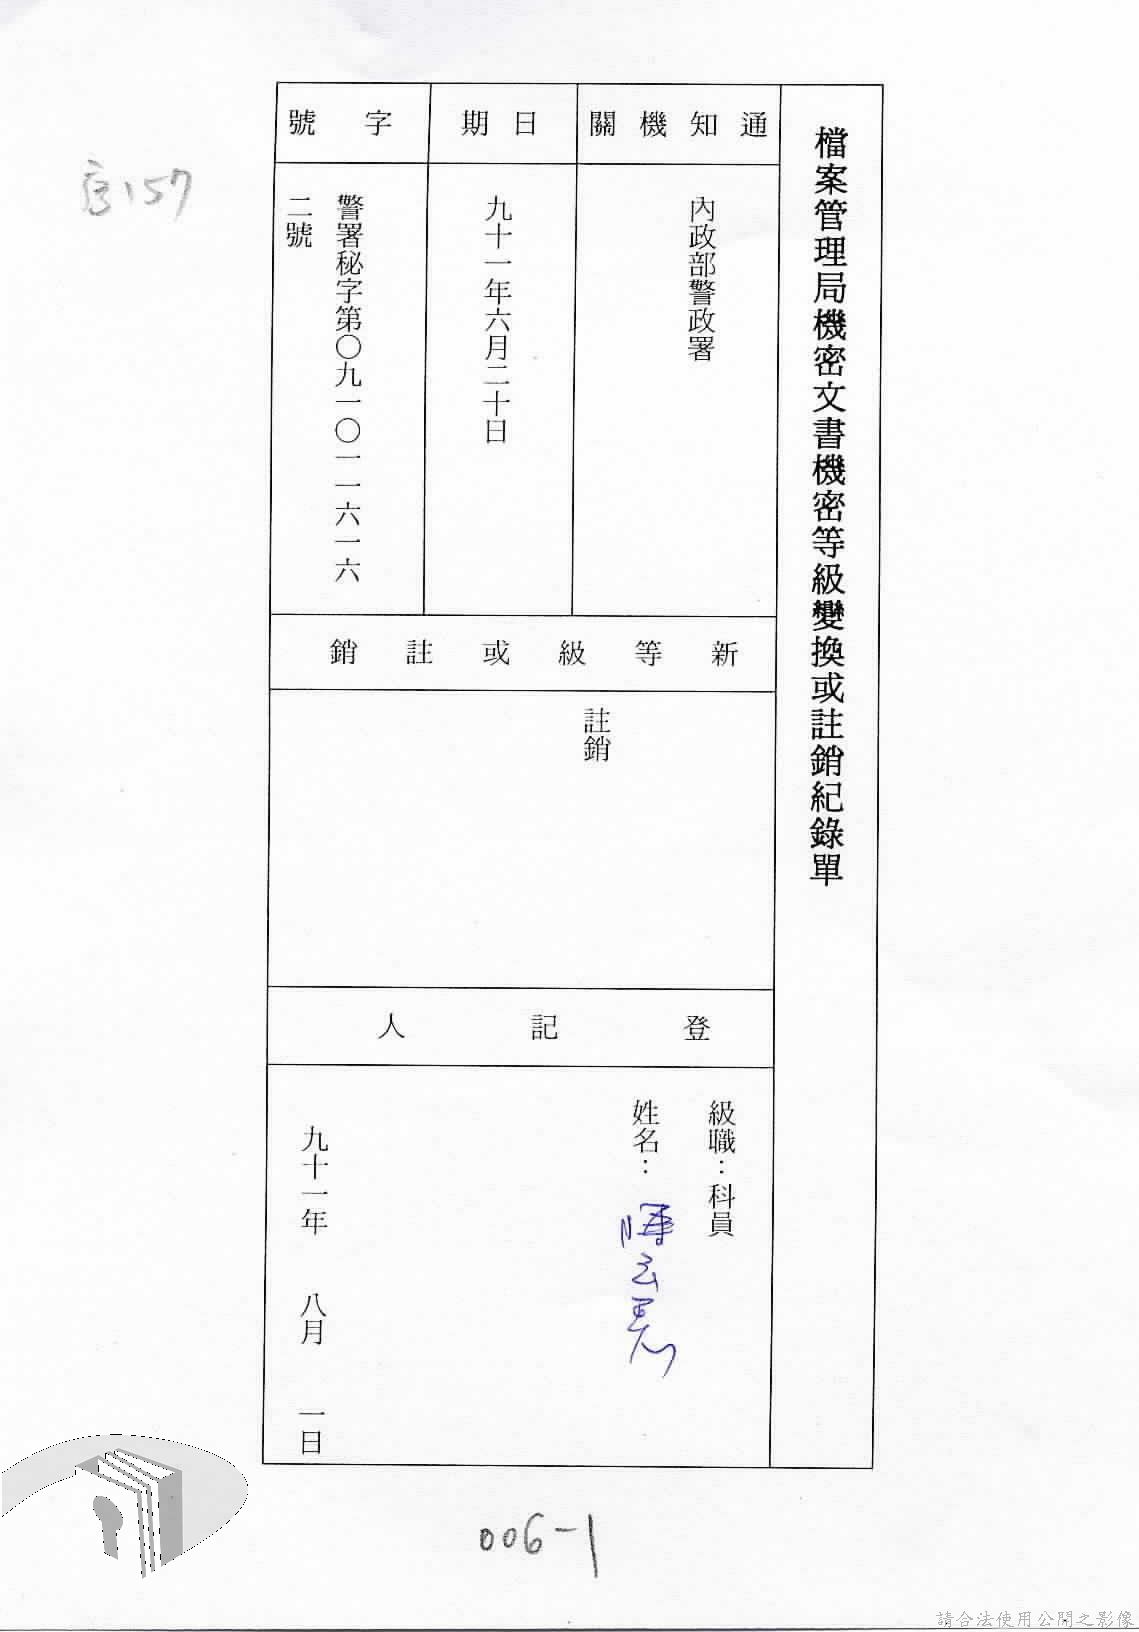 檔案管理局機密文書機密等級變換或註銷紀錄單
通知機關
內政部警政署
日期
九十一年六月二十日
字號
警署秘字第〇九一〇一一六一六
二號
新等級或註銷
註銷
登記人
級職：科員
姓名：
九十一年 八月 一日
157
006-1
請合法使用公開之影像